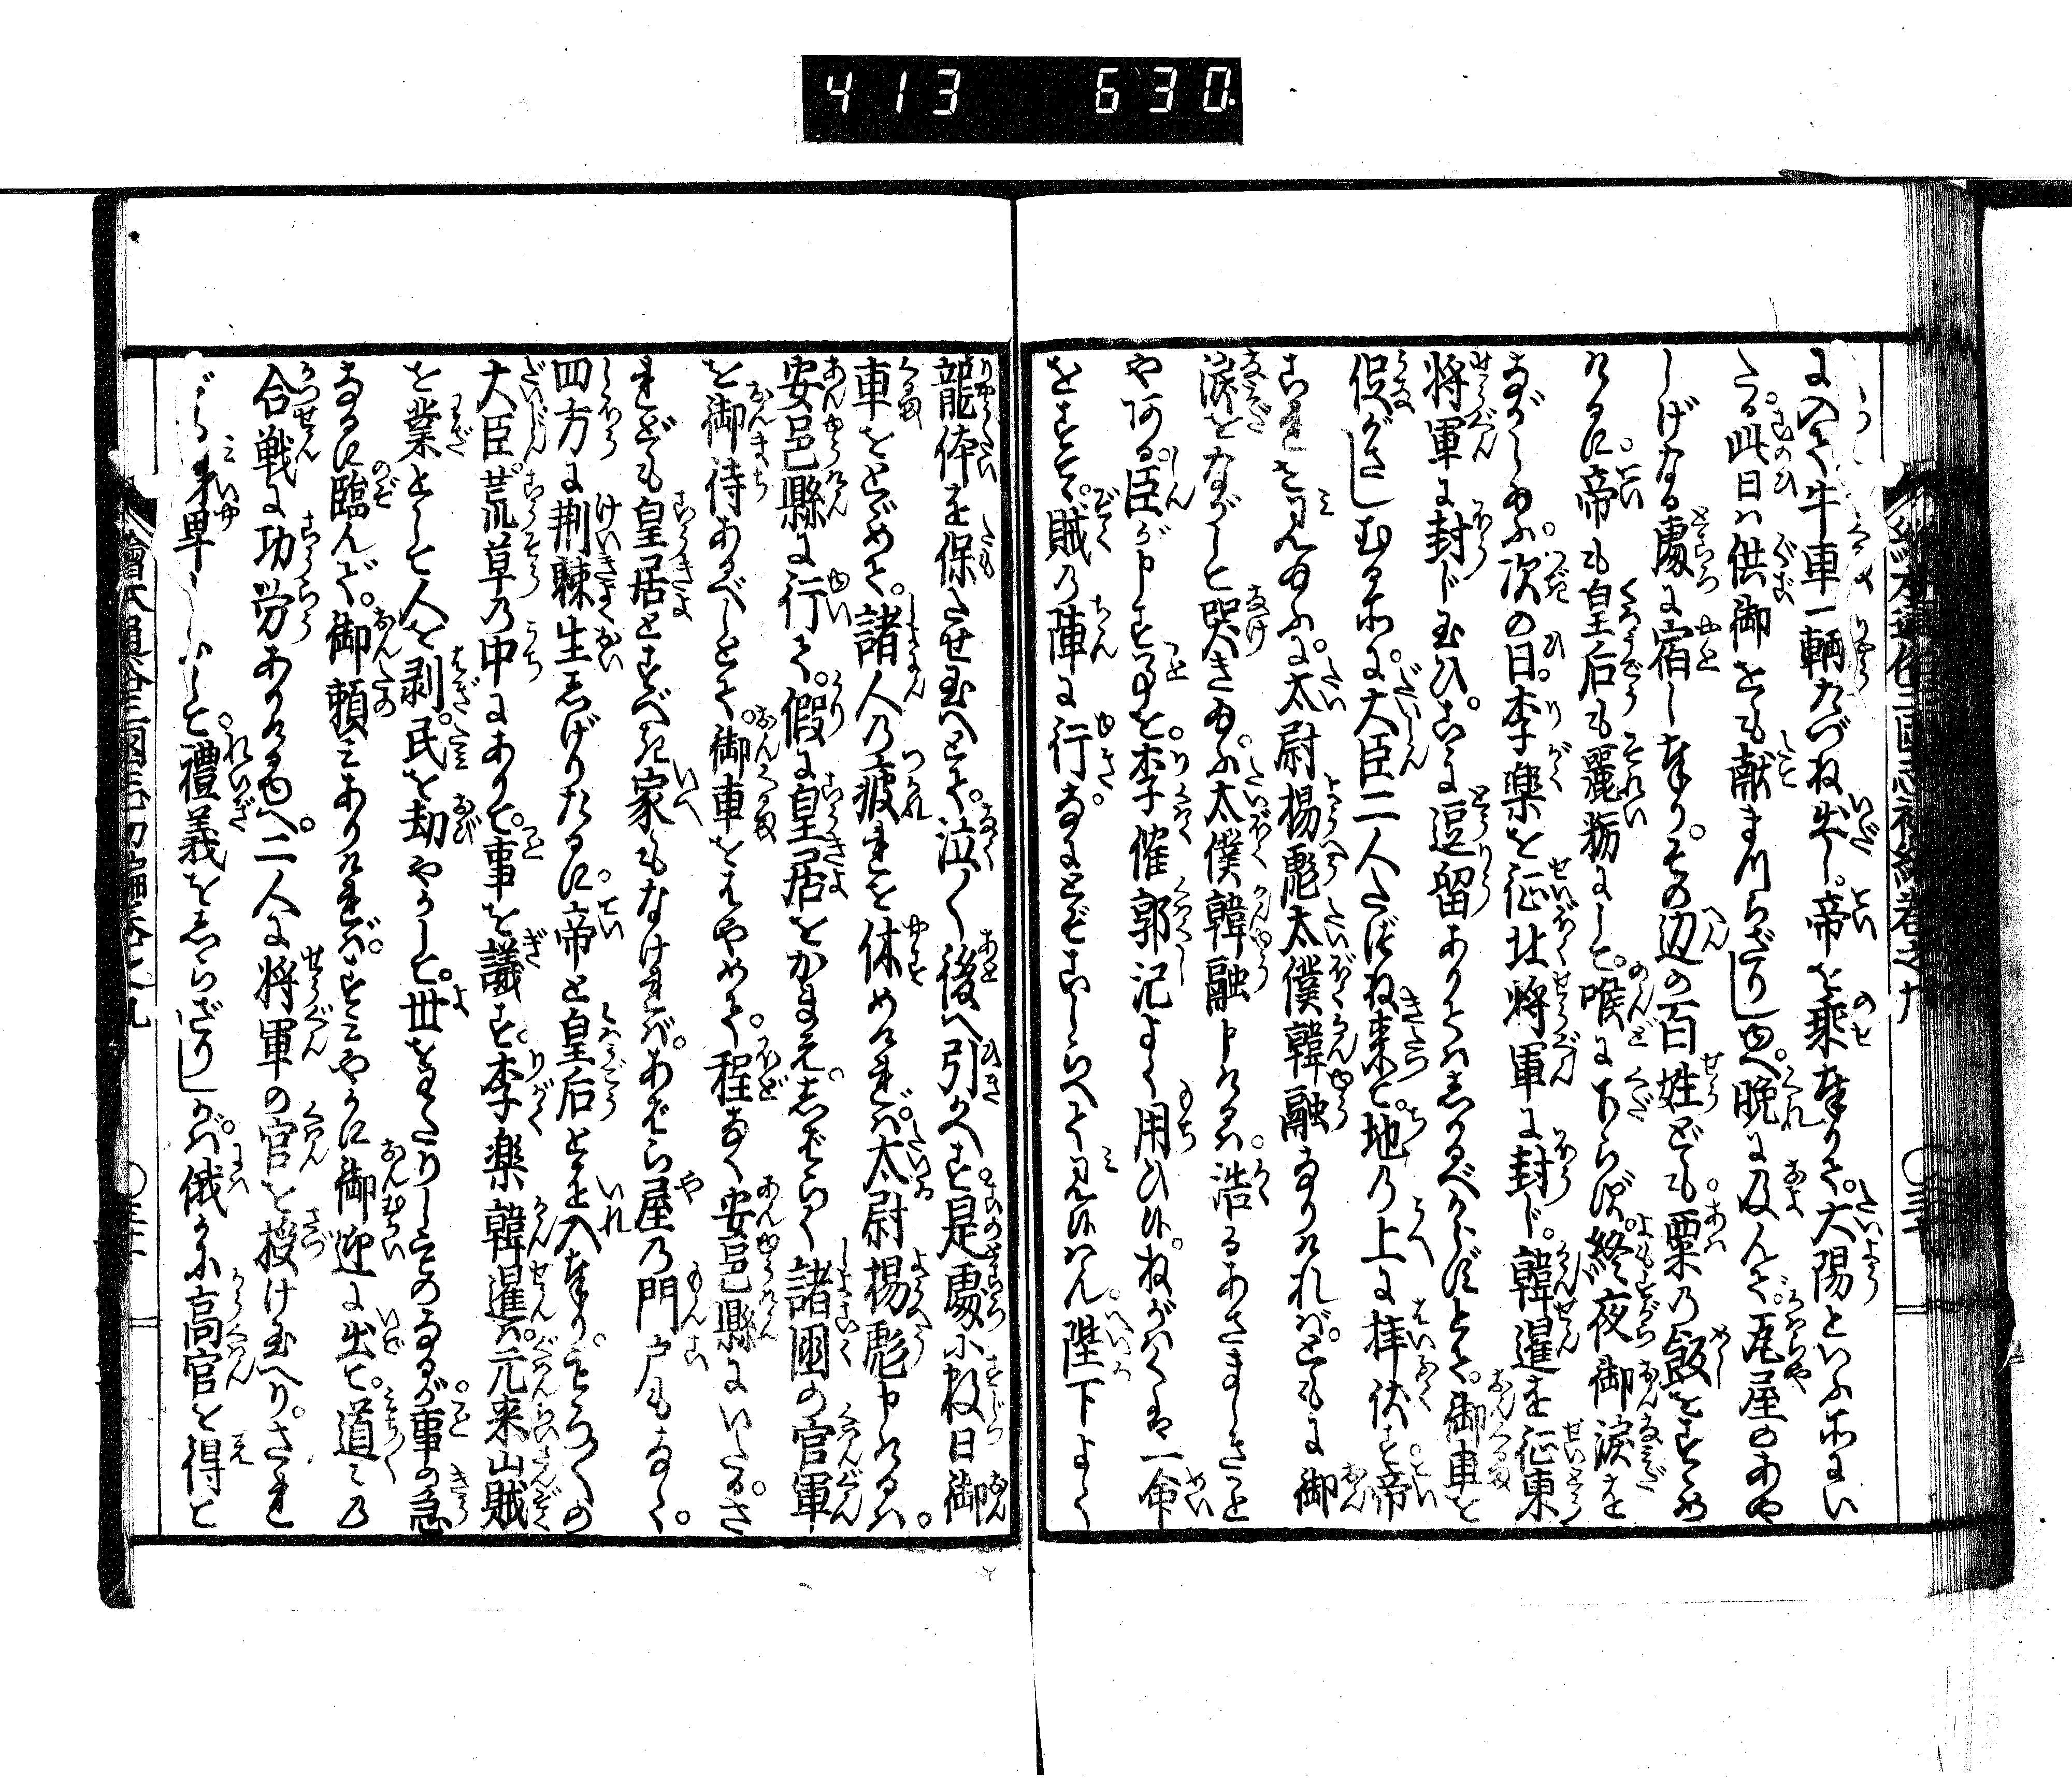 413 630
に入て牛車一輌たづね出し。帝を乗奉りて。大陽といふ所にい
たる。此日は供御をも献まつらざりしゆへ。晩に及んで。瓦屋のあや
しげなる處に宿し奉り。その辺の百姓ども。粟の飯をすゝめ
けるに。帝も皇后も麗粝にして。喉に下らず。終夜御涙を
ながし給ふ。次の日。李樂を征北将軍に封じ。韓暹を征東
将軍に封じ玉ひ。こゝに逗留ありては悪かるべからずとて。御車を
促がさしむる所に。大臣二人たづね来て。地の上に拝伏す。帝
これを見給ふに。太尉楊彪太僕韓融なりければ。ともに御
涙をながして哭き給ふ。太僕韓融申けるは。浩るあさましきこと
やある。臣が申す事を。李傕郭汜よく用ひ候。ねがはくは一命
をすてゝ。賊の陣に行。なにとぞこしらへて見候はん。陛下よく
龍体を保たせ玉へとて。泣〻後へ引かへす。是處に数日御
車をとゞめて。諸人の疲れを休めければ。太尉楊彪申けるは。
安邑縣に行て。假に皇居をかまえ。しばらく諸國の官軍
を御待あるべしとて。御車をはやめて。程なく安邑縣にいたる。さ
れども皇居とすべき家もなければ。あばら屋の門戸もなく。
四方に荆棘生しげりたるに。帝と皇后とを入奉り。もろ〳〵の
大臣。荒草の中にありて。事を議す。李樂韓暹は。元来山賊
を業として人を剥。民を劫やかして。世をわたりしものなるが。事の急
なるに臨んで。御頼みありければ。すみやかに御迎に出て。道〻の
合戦に功労ありけるゆへ。二人に将軍の官を授け玉へり。され
ども身卑しふして。禮義をしらざりしが。俄かに高官を得と